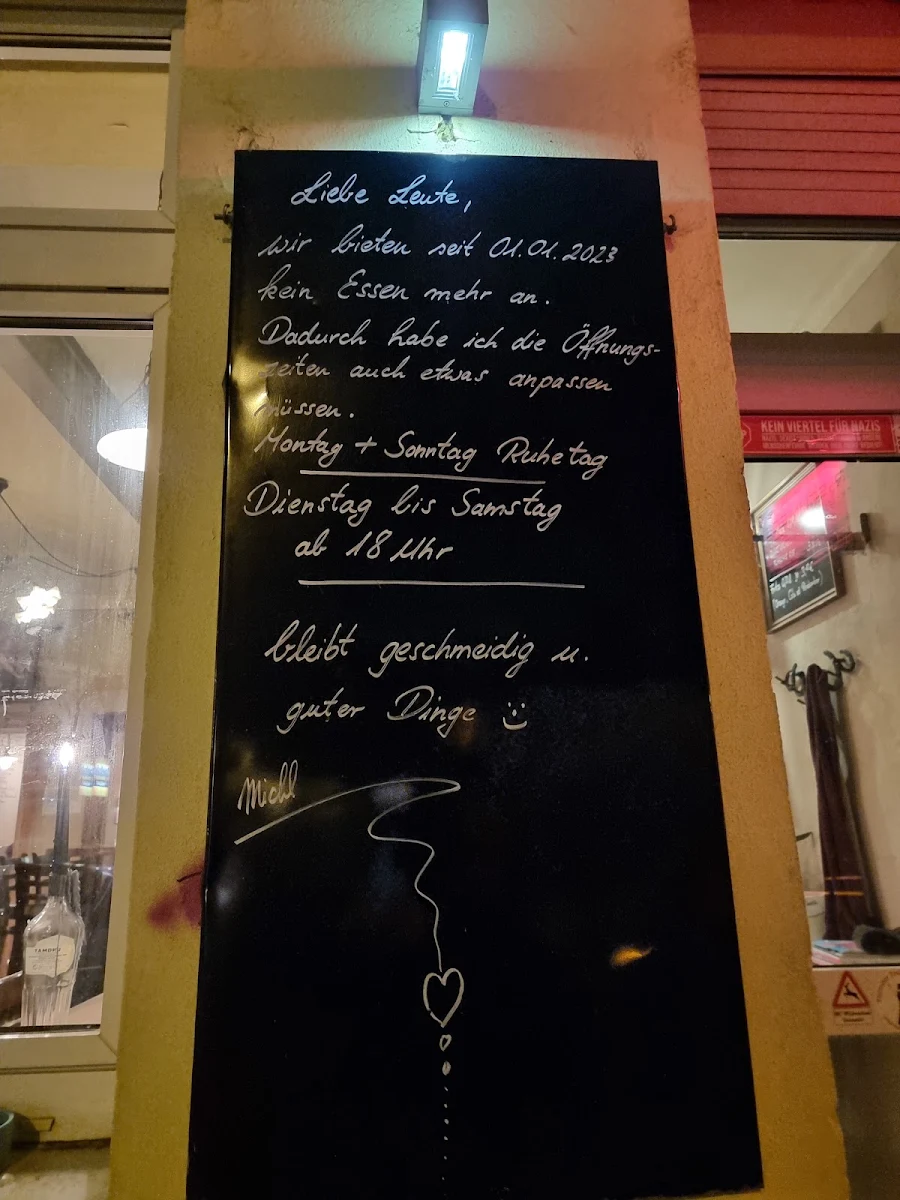 Liebe Leute,
wir bieten seit 01.01.2023
kein Essen mehr an.
Dadurch habe ich die Öffnungs-
zeiten auch etwas anpassen
müssen.
Montag + Sonntag Ruhetag
Dienstag bis Samstag
ab 18 Uhr
bleibt geschmeidig u.
guter Dinge
Michl
KEIN VIERTEL FÜR NAZIS